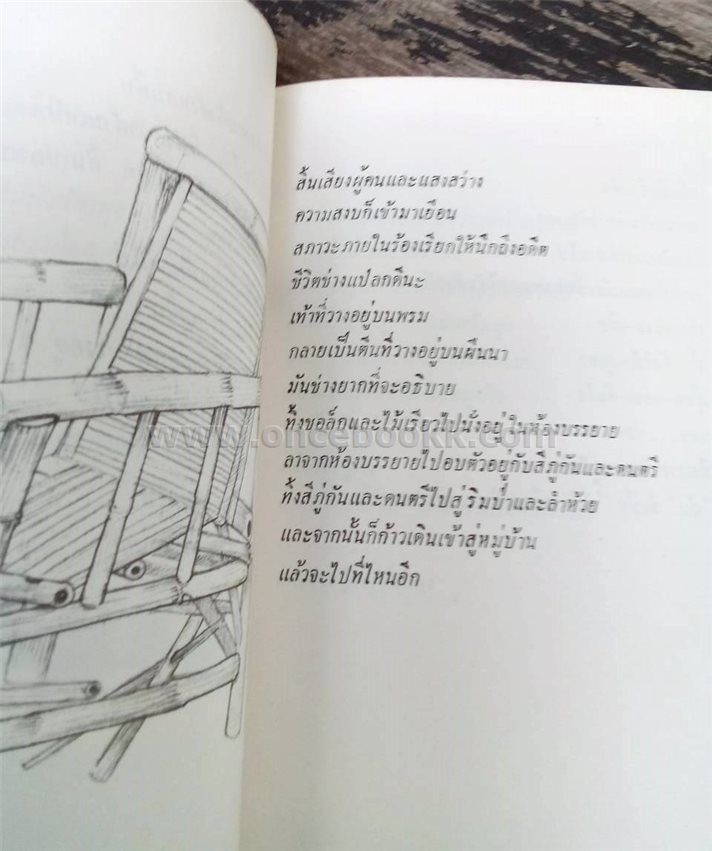 สิ้นเสียงผู้คนและแสงสว่าง
ความสงบก็เข้ามาเยือน
สภาวะภายในร้องเรียกให้นึกถึงอดีต
ชีวิตช่างแปลกดีนะ
เท้าที่วางอยู่บนพรม
กลายเป็นตีนที่วางอยู่บนผืนนา
มันช่างยากที่จะอธิบาย
ทิ้งชอล็กและไม้เรียวไปนั่งอยู่ในห้องบรรยาย
www.oncebookk.com
ลาจากห้องบรรยายไปอบตัวอยู่กับสีภู่กันและดนตรี
ทิ้งสีภู่กันและดนตรีไปสู่ริมป่าและลำห้วย
และจากนั้นก็ก้าวเดินเข้าสู่หมู่บ้าน
แล้วจะไปที่ไหนอีก